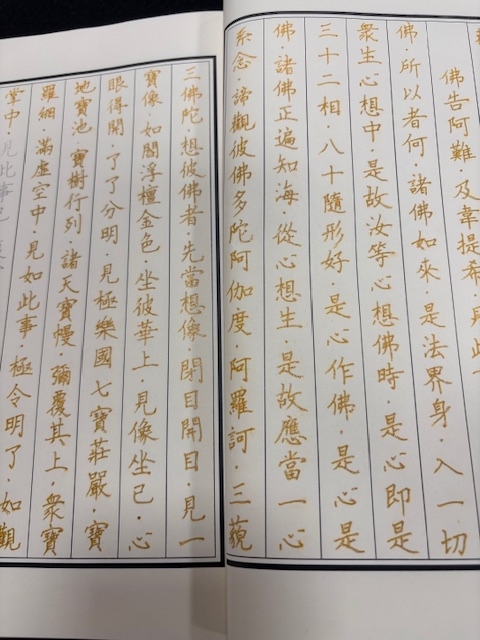 佛告阿難．及韋提希．見此
佛．所以者何．諸佛如來．是法界身．入一切
衆生心想中．是故汝等心想佛時．是心即是
三十二相．八十隨形好．是心作佛．是心是
佛．諸佛正遍知海．從心想生．是故應當一心
系念．諦觀彼佛多陀阿伽度．阿羅訶．三藐
三佛陀．想彼佛者．先當想像．閉目開目．見一
寶像．如閻浮檀金色．坐彼華上．見像坐已．心
眼得開．了了分明．見極樂國七寶莊嚴．寶
地寶池．寶樹行列．諸天寶幔．彌覆其上．衆寶
羅網．滿虛空中．見如此事．極令明了．如觀
掌中．見此事已